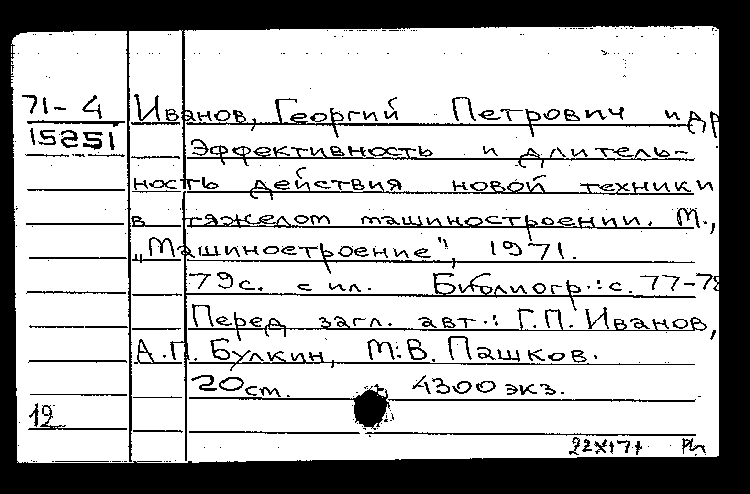 71-4 Иванов, Георгий Петрович и др
15251
Эффективность и длитель-
ность действия новой техники
в тяжелом машиностроении. М.,
„Машиностроение", 1971.
79с. с ил. Библиогр.: с. 77-78
Перед загл. авт.: Г.П. Иванов,
А.П. Булкин, М.В. Пашков.
20ст. 4300 экз.
12
22XI71